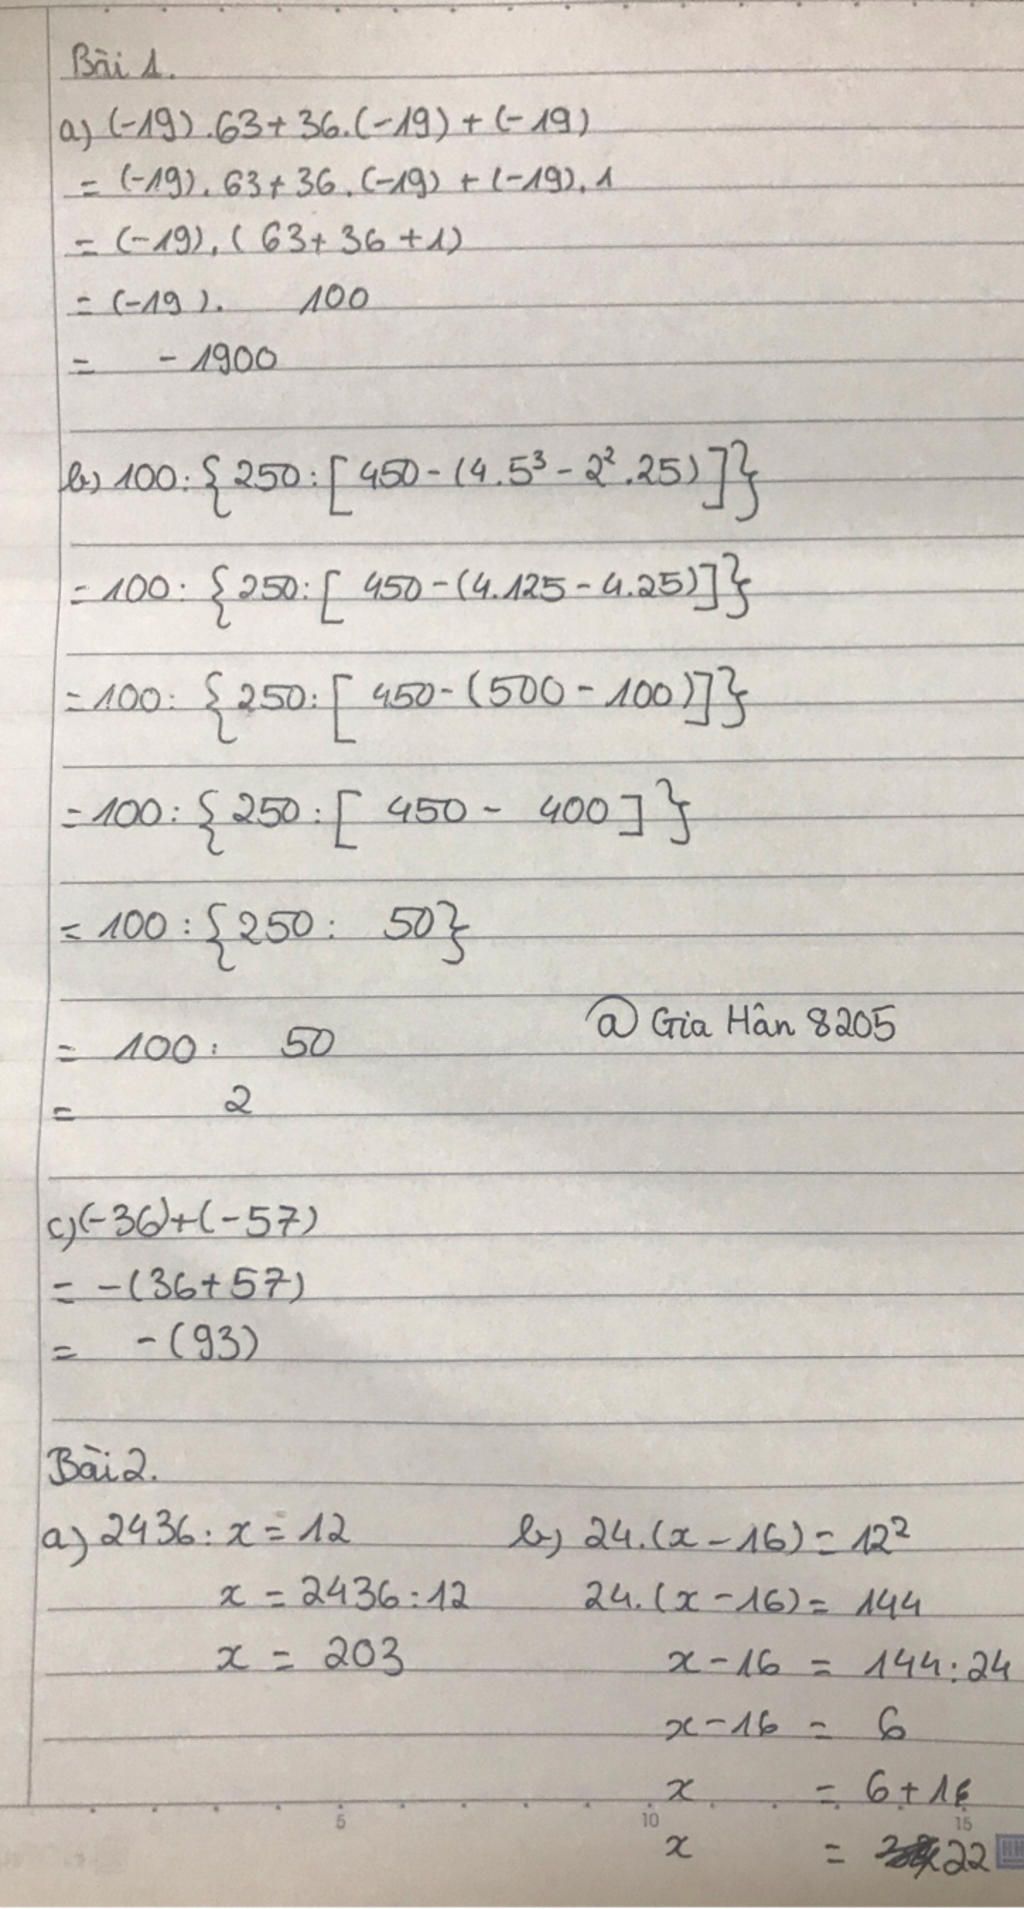 Bài 1.
a) (-19).63+36.(-19)+(-19)
= (-19).63+36.(-19)+(-19).1
= (-19).(63+36+1)
= (-19). 100
= -1900
b) 100:{250:[450-(4.5³-2².25)]}
=100:{250:[450-(4.125-4.25)]}
=100:{250:[450-(500-100)]}
=100:{250:[450-400]}
=100:{250: 50}
@ Gia Hân 8205
= 100: 50
= 2
c) (-36)+(-57)
= -(36+57)
= -(93)
Bài 2.
a) 2436:x=12 b) 24.(x-16)=12²
x = 2436:12 24.(x-16)= 144
x = 203 x-16 = 144:24
x-16 = 6
x = 6+16
5 10 15
x = 22